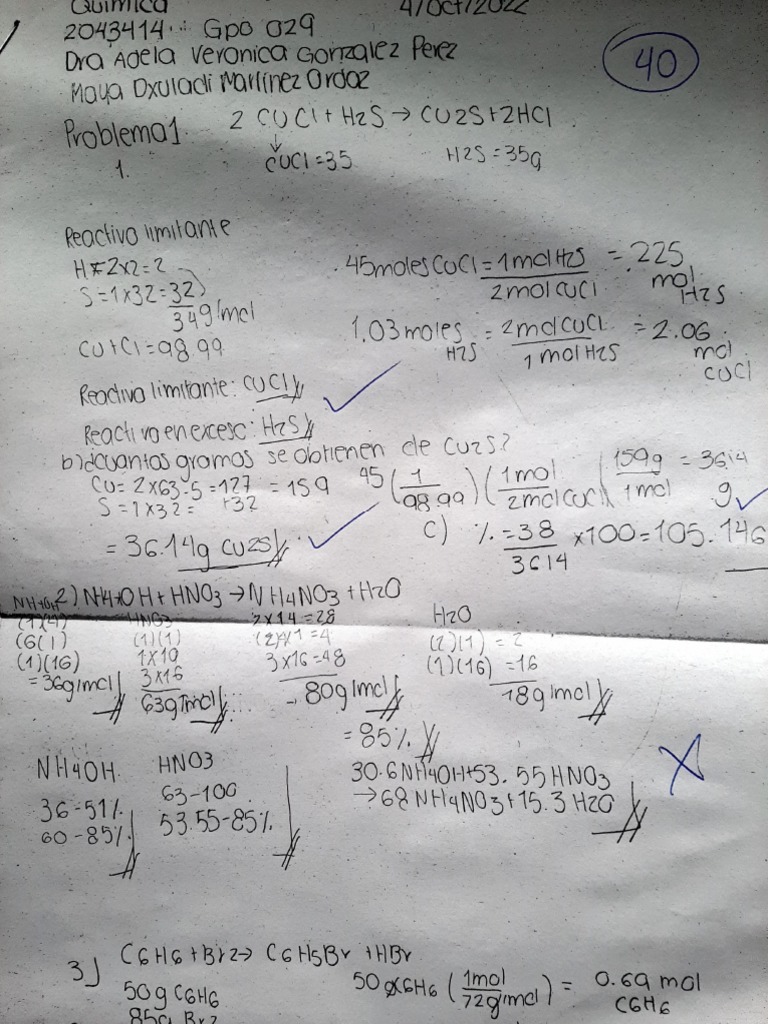 Química 4/Oct/2022
2043414 Gpo 029
Dra Adela Veronica Gonzalez Perez
Maya Oxuladi Martínez Ordaz
40
Problema 1. 2 CuCl + H2S → CU2S + 2HCl
1. CUCl = 35 H2S = 35g
Reactivo limitante
H = 2x2 = 2
S = 1x32 = 32
34g/mol
CU + Cl = 98.99
.45 moles CuCl = 1 mol H2S / 2 mol CUCl = .225 mol H2S
1.03 moles H2S = 2 mol CUCl / 1 mol H2S = 2.06 mol CUCl
Reactivo limitante: CUCl
Reactivo en exceso: H2S
b) ¿cuantos gramos se obtienen de CU2S?
CU = 2x63.5 = 127 = 159
S = 1x32 = +32
45 (1 / 98.99) (1 mol / 2 mol CUCl) (159g / 1 mol = 36.14 g
= 36.14g CU2S
c) % = 38 / 3614 x100 = 105.146
2) NH4OH + HNO3 → NH4NO3 + H2O
NH4OH
(1)(14)
(6(1)
(1)(16)
= 36g/mol
HNO3
(1)(1)
1x10
3x16
63g/mol
2x14 = 28
(2)4/1 = 4
3x16 = 48
80g/mol
H2O
(2)(1) = 2
(1)(16) = 16
18g/mol
= 85%
NH4OH
36-51%
60-85%
HNO3
63-100
53.55-85%
30.6 NH4OH + 53.55 HNO3
→ 68 NH4NO3 + 15.3 H2O
3) C6H6 + Br2 → C6H5Br + HBr
50g C6H6
85g Br2
50g C6H6 (1mol / 72g/mol) = 0.69 mol C6H6